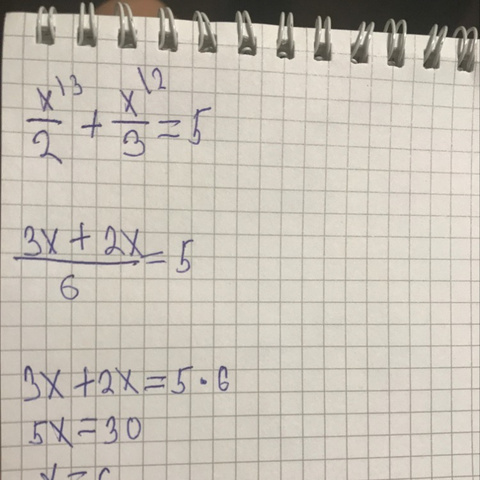 x\3/2 + x\2/3 = 5
3x + 2x/6 = 5
3x + 2x = 5 · 6
5x = 30
x =